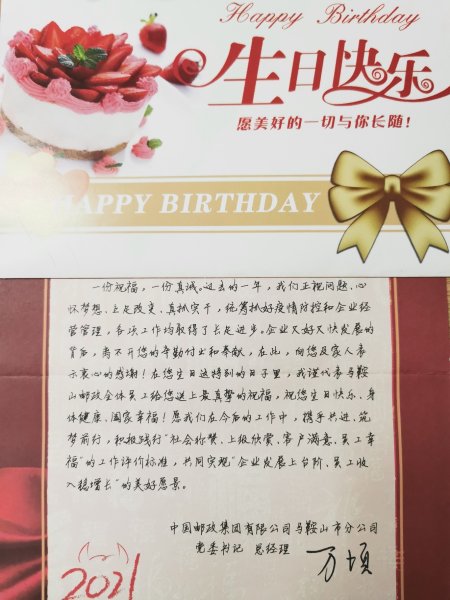 Happy Birthday
生日快乐
愿美好的一切与你长随!
HAPPY BIRTHDAY
一份祝福,一份真诚。过去的一年,我们正视问题、心
怀梦想、立足改变、真抓实干,统筹抓好疫情防控和企业经
营管理,各项工作均取得了长足进步。企业又好又快发展的
背后,离不开您的辛勤付出和奉献,在此,向您及家人表
示衷心的感谢!在您生日这特别的日子里,我谨代表马
鞍山邮政全体员工给您送上最真挚的祝福,祝您生日快乐、身
体健康、阖家幸福!愿我们在今后的工作中,携手共进、筑
梦前行,积极践行“社会称赞、上级欣赏、客户满意、员工幸
福”的工作评价标准,共同实现“企业发展上台阶、员工收
入稳增长”的美好愿景。
中国邮政集团有限公司马鞍山市分公司
党委书记 总经理 万顷
2021